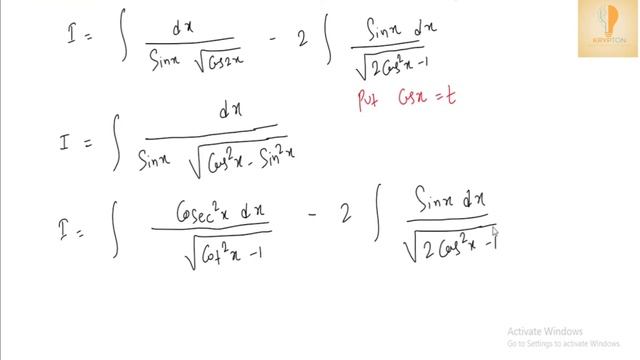 I = ∫ dx / Sinx √Cos2x - 2 ∫ Sinx dx / √2Cos²x - 1
Put Cosx = t
I = ∫ dx / Sinx √Cos²x - Sin²x
I = ∫ Cosec²x dx / √Cot²x - 1 - 2 ∫ Sinx dx / √2Cos²x - 1
KRYPTON
Activate Windows
Go to Settings to activate Windows.